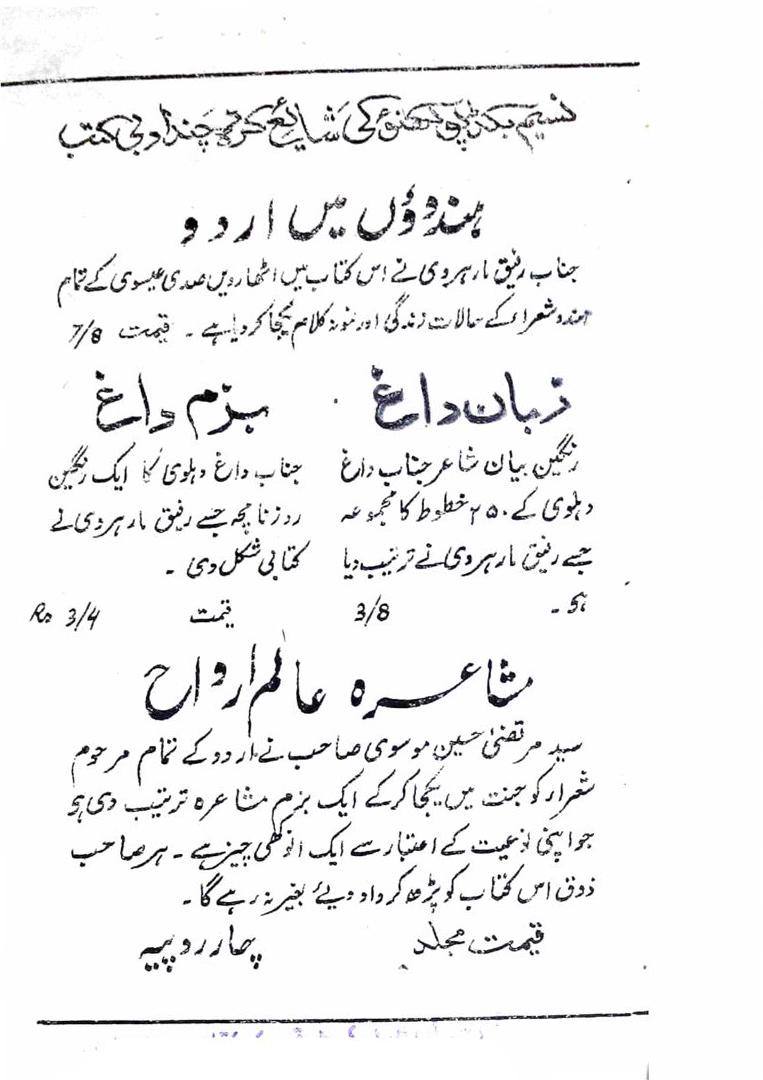 نسیم بکڈپو لکھنؤ کی شائع کردہ چند ادبی کتب
ہندوؤں میں اردو
جناب رفیق مارہروی نے اس کتاب میں اٹھارویں صدی عیسوی کے تمام
ہندو شعراء کے حالات زندگی اور نمونہ کلام یکجا کر دیا ہے ۔ قیمت 7/8
زبان داغ
رنگین بیان شاعر جناب داغ
دہلوی کے ۲۵۰ خطوط کا مجموعہ
جسے رفیق مارہروی نے ترتیب دیا
ہی ۔ 3/8
بزم داغ
جناب داغ دہلوی کا ایک رنگین
روزنامچہ جسے رفیق مارہروی نے
کتابی شکل دی ۔
قیمت Rs 3/4
مشاعرہ عالم ارواح
سید مرتضیٰ حسین موسوی صاحب نے اردو کے تمام مرحوم
شعراء کو جنت میں یکجا کرکے ایک بزم مشاعرہ ترتیب دی ہو
جو اپنی نوعیت کے اعتبار سے ایک انوکھی چیز ہے ۔ ہر صاحب
ذوق اس کتاب کو پڑھ کر داد دیئے بغیر نہ رہے گا ۔
قیمت مجلد چار روپیہ